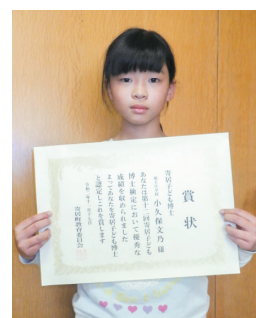 賞状
寄居子ども博士
小久保文乃 様
あなたは第十二回寄居子ども
博士検定において優秀な
成績を収められました
よってあなたを寄居子ども博士
と認定しこれを賞します
寄居町教育委員会